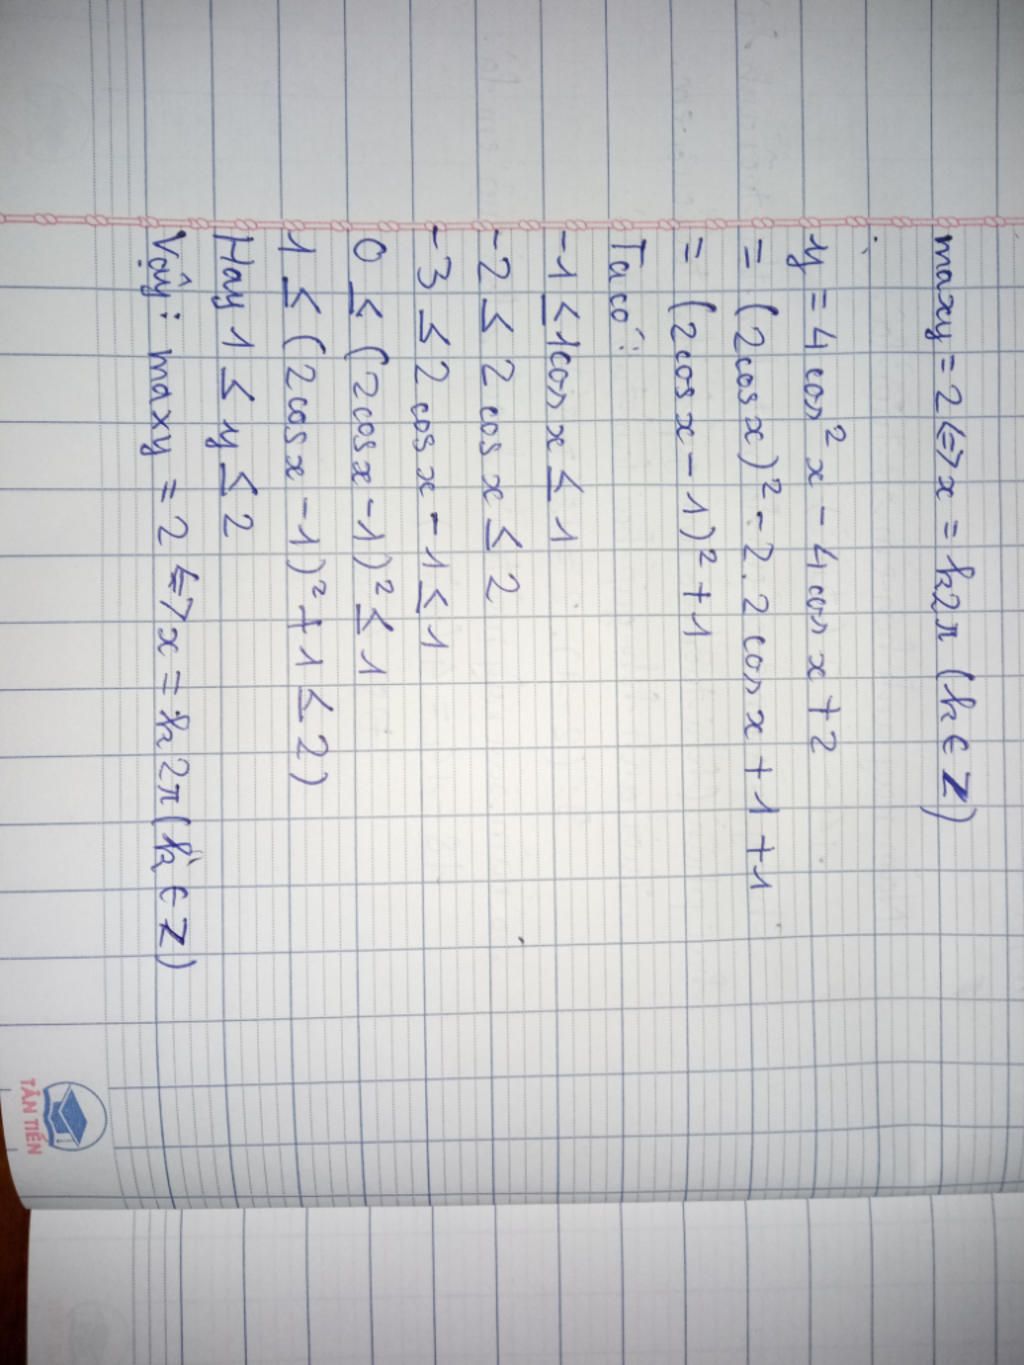 maxy = 2 <=> x = k2π (k ∈ Z)
y = 4 cos² x - 4 cos x + 2
= (2cos x)² - 2. 2 cos x + 1 + 1
= (2cos x - 1)² + 1
Ta có:
-1 ≤ 1cos x ≤ 1
-2 ≤ 2 cos x ≤ 2
-3 ≤ 2 cos x - 1 ≤ 1
0 ≤ (2cos x - 1)² ≤ 1
1 ≤ (2cos x - 1)² + 1 ≤ 2)
Hay 1 ≤ y ≤ 2
Vậy: maxy = 2 <=> x = k2π (k ∈ Z)
TÂN TIẾN